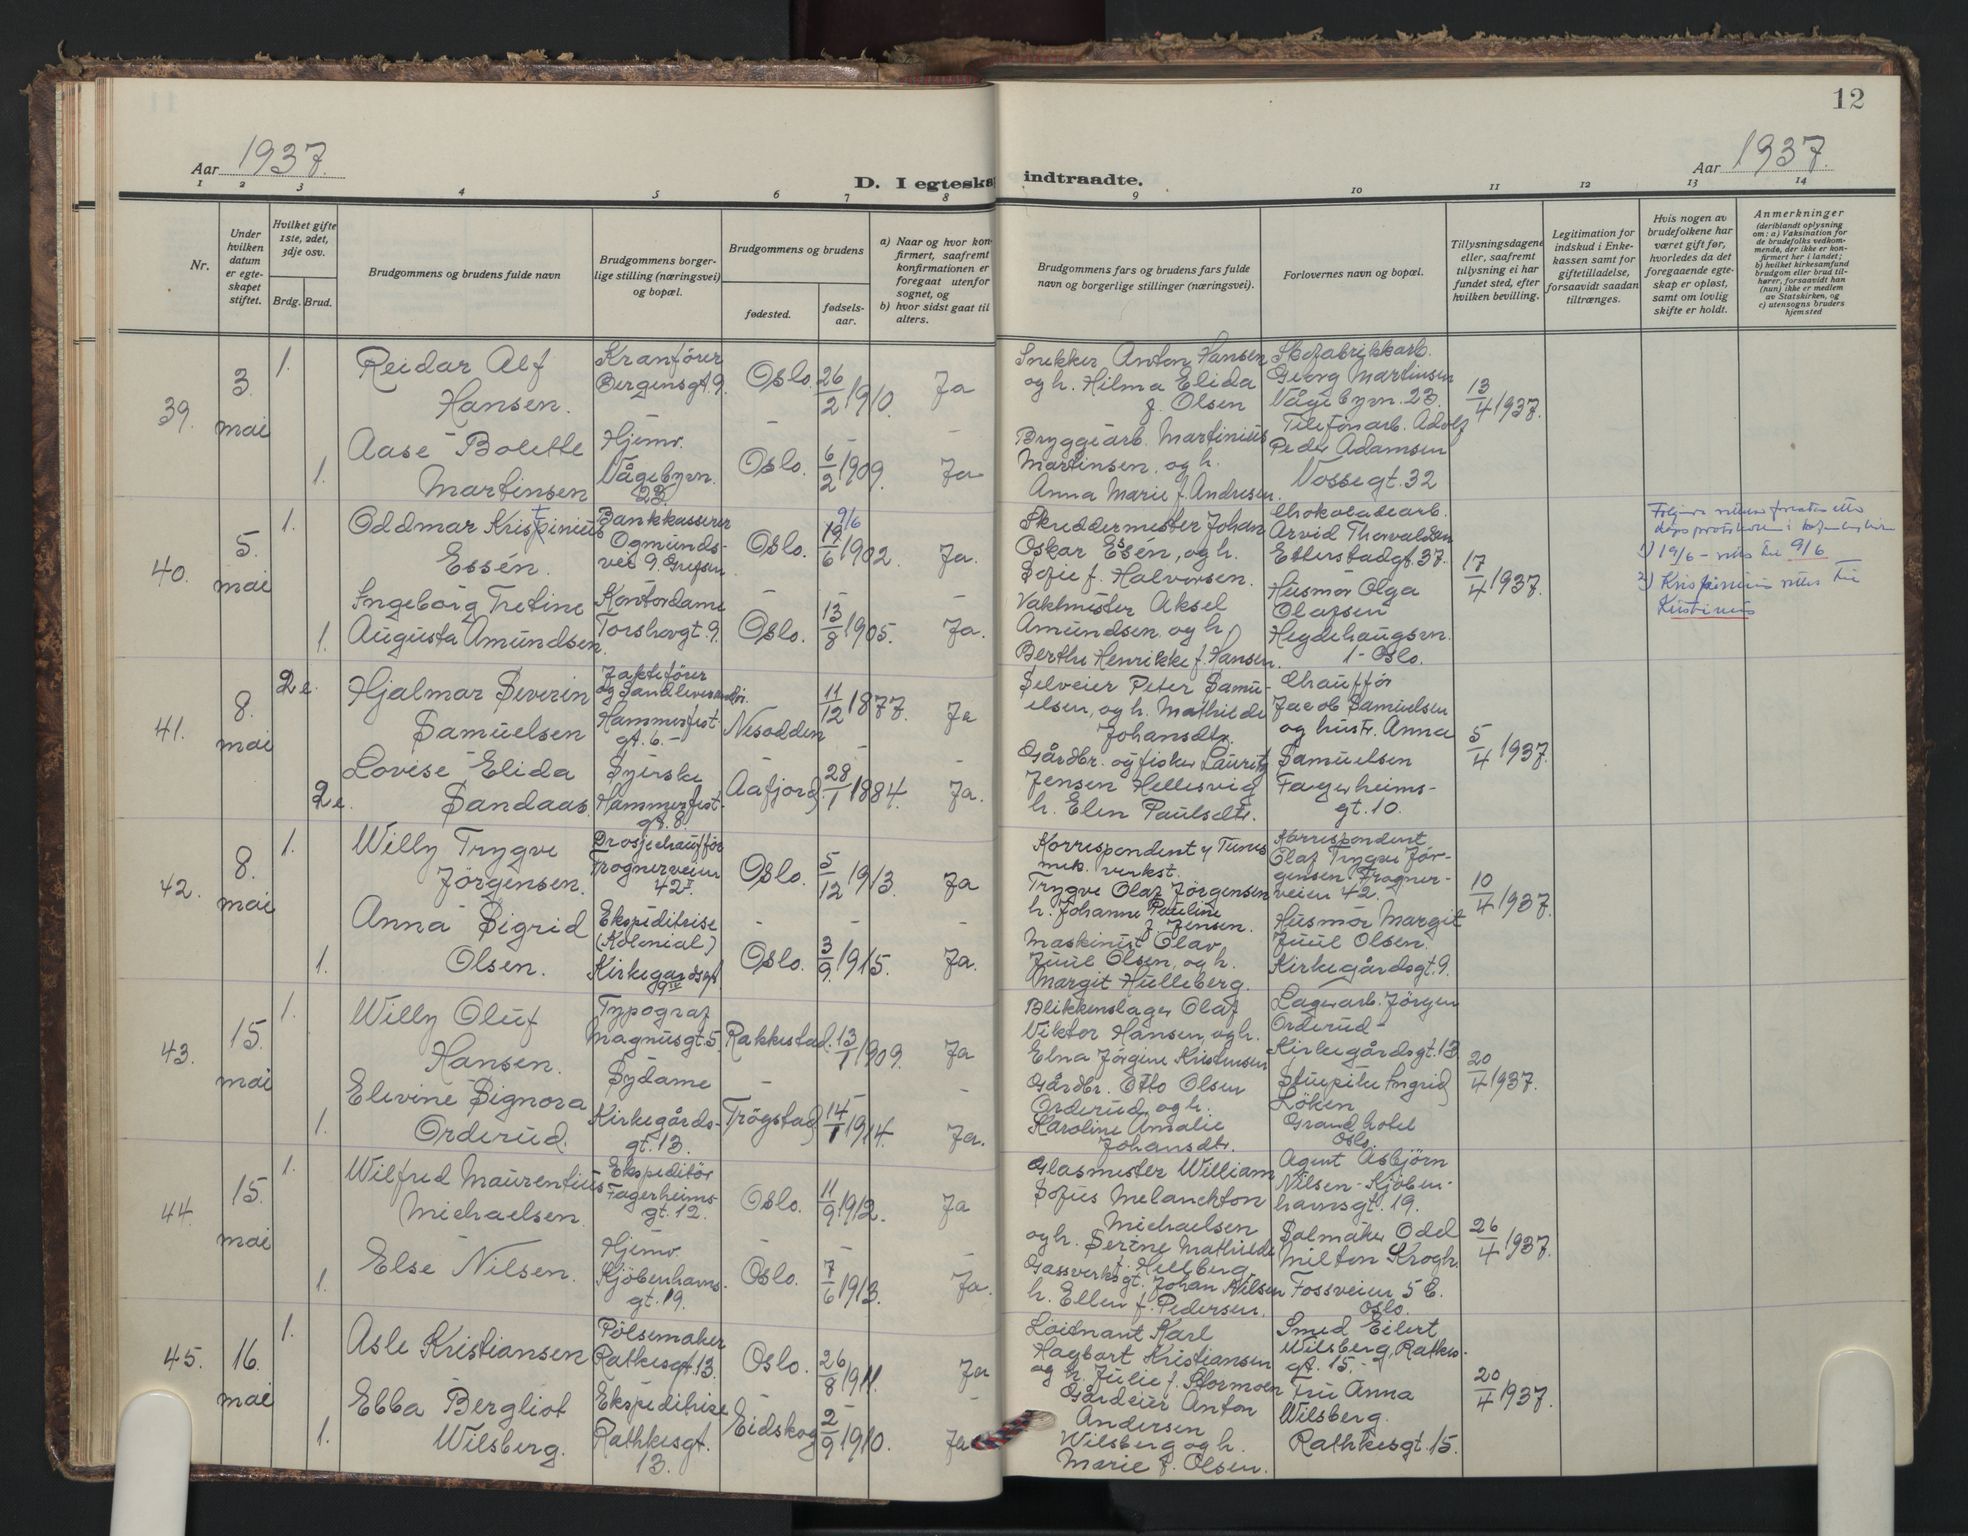 12
Aar 1937.
Aar 1937.
D. I egteska indtraadte.
1 2 3 4 5 6 7 8 9 10 11 12 13 14
Nr.
Under hvilken datum er egteskapet stiftet.
Hvilket gifte 1ste, 2det, 3dje osv.
Brdg. Brud.
Brudgommens og brudens fulde navn
Brudgommens borgerlige stilling (næringsvei) og bopæl.
Brudgommens og brudens
fødested.
fødselsaar.
a) Naar og hvor konfirmert, saafremt konfirmationen er foregaat utenfor sognet, og
b) hvor sidst gaat til alters.
Brudgommens fars og brudens fars fulde navn og borgerlige stillinger (næringsvei).
Forlovernes navn og bopæl.
Tillysningsdagene eller, saafremt tillysning ei har fundet sted, efter hvilken bevilling.
Legitimation for indskud i Enkekassen samt for giftetilladelse, forsaavidt saadan tiltrænges.
Hvis nogen av brudefolkene har været gift før, hvorledes da det foregaaende egteskap er opløst, samt om lovlig skifte er holdt.
Anmerkninger (deriblandt oplysning om: a) Vaksination for de brudefolks vedkommende, der ikke er konfirmert her i landet; b) hvilket kirkesamfund brudgom eller brud tilhører, forsaavidt han (hun) ikke er medlem av Statskirken, og c) utensogns bruders hjemsted
39.
3. mai
1.
Reidar Alf
Hansen.
Kranförer
Bergensgt. 9.
Oslo. 26/2 1910. Ja
Snekker Anton Hansen
og h. Hilma Elida
f. Olsen
Skofabrikkarb.
Georg Martinsen
Vågebyvn. 23.
13/4 1937.
1.
Aase Bolette
Martinsen
Hjemv.
Vågebyvn.
23
Oslo. 6/2 1909. Ja
Bryggearb. Martinius
Martinsen, og h.
Anna Marie f. Andresen.
Telefonarb. Adolf
Peder Adamsen
Vossegt. 32
40.
5. mai
1.
Oddmar Krispinius
Essén.
Bankkasserer
Ogmunds-
vei 9. Grefsen
Oslo. 9/6
19/6 1902. Ja.
Skreddermester Johan
Oskar Essén, og h.
Sofie f. Halvorsen.
Chokoladearb.
Arvid Thorvaldsen
Etterstadgt. 37.
17/4 1937.
1) 19/6 – rettes til 9/6
2) Krispinius rettes til
Kristinius
1.
Ingeborg Tretine
Augusta Amundsen.
Kontordame
Torshovgt. 9.
Oslo. 13/8 1905. Ja.
Vaktmester Aksel
Amundsen og h.
Berthe Henrikke f. Hansen.
Husmor Olga
Olafsen
Hegdehaugsvn.
1 – Oslo.
41.
8. mai
2e.
Hjalmar Severin
Samuelsen
Jaktefører
og Sandleverandør.
Hammerfest-
gt. 6. –
Nesodden 11/12 1877. Ja
Selveier Peter Samu-
elsen, og h. Mathilde
Johansdtr.
Chauffør
Jacob Samuelsen
og hustr. Anna
Samuelsen
Fagerheims-
gt. 10.
5/4 1937.
2e.
Lovise Elida
Sandaas.
Syerske
Hammerfest-
gt. 8.
Aafjord. 28/1 1884. Ja.
Gårdbr. og fisker Lauritz
Jensen Hellesvig
h. Elen Paulsdtr.
42.
8. mai
1.
Willy Trygve
Jörgensen.
Drosjechauffør
Frognerveien
42 I
Oslo. 5/12 1913. Ja
Korrespondent v Tunes
mek. verkst.
Trygve Olaf Jörgensen
h. Johanne Pauline
f. Jensen.
Korrespondent
Olaf Trygve Jör-
gensen. Frogner-
veien 42.
10/4 1937.
1.
Anna Sigrid
Olsen.
Ekspeditrise
(Kolonial)
Kirkegårdsgt
9 IV
Oslo. 3/9 1915. Ja.
Maskinist Olav
Juul Olsen, og h.
Margit Hulleberg.
Husmor Margit
Juul Olsen.
Kirkegårdsgt. 9.
43.
15. mai
1.
Willy Oluf
Hansen.
Typograf
Magnusgt. 5.
Rakkestad. 13/1 1909. Ja
Blikkenslager Olaf
Viktor Hansen, og h.
Elna Jörgine Kristensen
Lagerarb. Jörgen
Orderud –
Kirkegårdsgt. 13
20/4 1937.
1.
Elevine Signora
Orderud.
Sydame
Kirkegårds-
gt. 13.
Trögstad 14/1 1914. Ja.
Gårdbr. Otto Olsen
Orderud og h.
Karoline Amalie
Johansdtr.
Stuepike Ingrid
Löken
Grand hotel
Oslo.
44.
15. mai
1.
Wilfred Maurentius
Michaelsen
Ekspeditör
Fagerheims-
gt. 12.
Oslo. 11/9 1912. Ja
Glasmester William
Sofus Melanckton
Michaelsen
og h. Serine Mathilde
f. Hellberg.
Agent Asbjörn
Nilsen – Kjöben-
havnsgt. 19.
26/4 1937.
1.
Else Nilsen.
Hjemv.
Kjöbenhavns-
gt. 19.
Oslo. 7/6 1913. Ja.
Gassverksgt. Johan Nilsen
h. Ellen f. Pedersen.
Salmaker Odel
Milton Krogh.
Fossveien 5 E.
Oslo.
45.
16. mai
1.
Asle Kristiansen
Pölsemaker
Rathkesgt. 13.
Oslo. 26/8 1911. Ja
Löitnant Karl
Hagbart Kristiansen
og h. Julie f. Stormoen
Smed Eilert
Wilsberg, Rathkes-
gt. 15. –
20/4 1937.
1.
Ebba Bergliot
Wilsberg.
Ekspeditrise
Rathkesgt.
13.
Eidskog 2/9 1910. Ja
Gårdeier Anton
Andersen
Wilsberg og h.
Marie f. Olsen.
Fru Anna
Wilsberg.
Rathkesgt. 15.